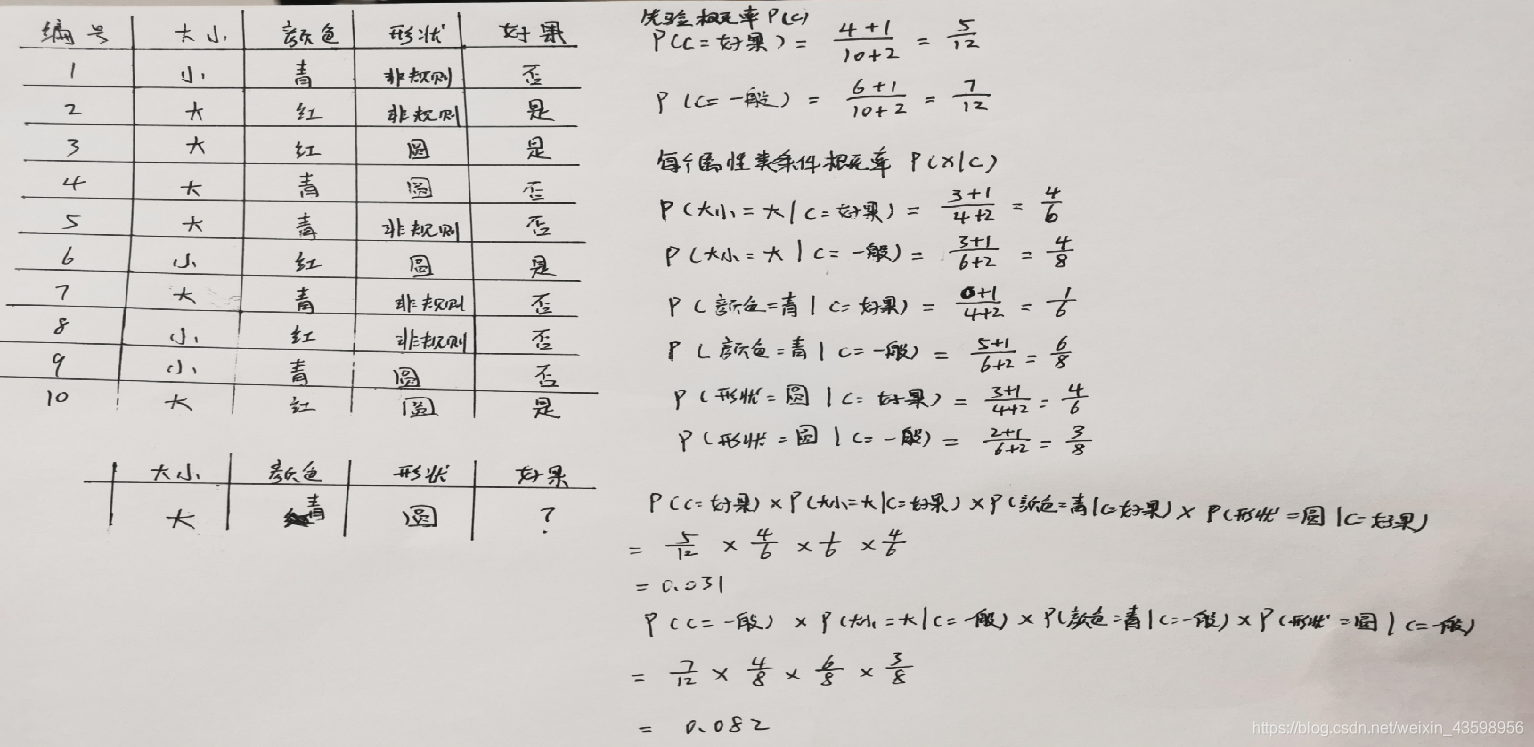 编号 大小 颜色 形状 好果
1 小 青 非规则 否
2 大 红 非规则 是
3 大 红 圆 是
4 大 青 圆 否
5 大 青 非规则 否
6 小 红 圆 是
7 大 青 非规则 否
8 小 红 非规则 否
9 小 青 圆 否
10 大 红 圆 是
大小 颜色 形状 好果
大 青 圆 ?
先验概率 P(c)
P(c=好果) = 4+1/10+2 = 5/12
P(c=一般) = 6+1/10+2 = 7/12
每个属性类条件概率 P(x|c)
P(大小=大|c=好果) = 3+1/4+2 = 4/6
P(大小=大|c=一般) = 3+1/6+2 = 4/8
P(颜色=青|c=好果) = 0+1/4+2 = 1/6
P(颜色=青|c=一般) = 5+1/6+2 = 6/8
P(形状=圆|c=好果) = 3+1/4+2 = 4/6
P(形状=圆|c=一般) = 2+1/6+2 = 3/8
P(c=好果)×P(大小=大|c=好果)×P(颜色=青|c=好果)×P(形状=圆|c=好果)
= 5/12 × 4/6 × 1/6 × 4/6
= 0.031
P(c=一般)×P(大小=大|c=一般)×P(颜色=青|c=一般)×P(形状=圆|c=一般)
= 7/12 × 4/8 × 6/8 × 3/8
= 0.082
https://blog.csdn.net/weixin_43598956